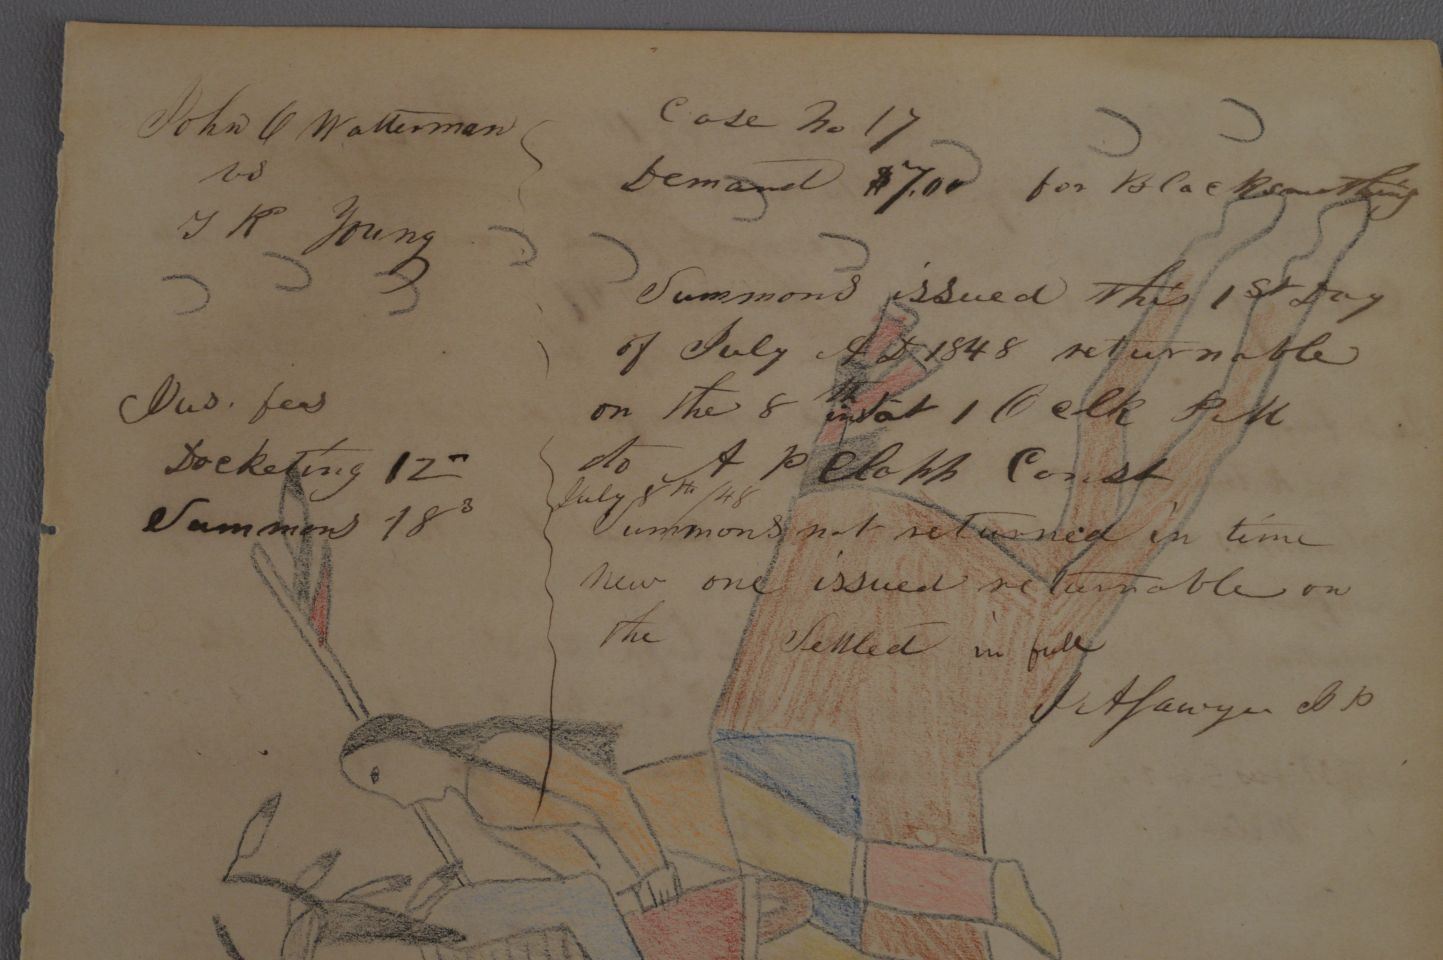 John C Watterman
vs
T R Young
Case No 17
Demand $7.00 for Blacksmithing
Summons issued this 1st Day
of July A D 1848 returnable
on the 8th inst at 1 O clk P M
to A P Clapp Const
July 8th/48
Summons not returned in time
new one issued returnable on
the Settled in full
A Sawyer J P
Jus. fees
Docketing 12
Summons 18 3